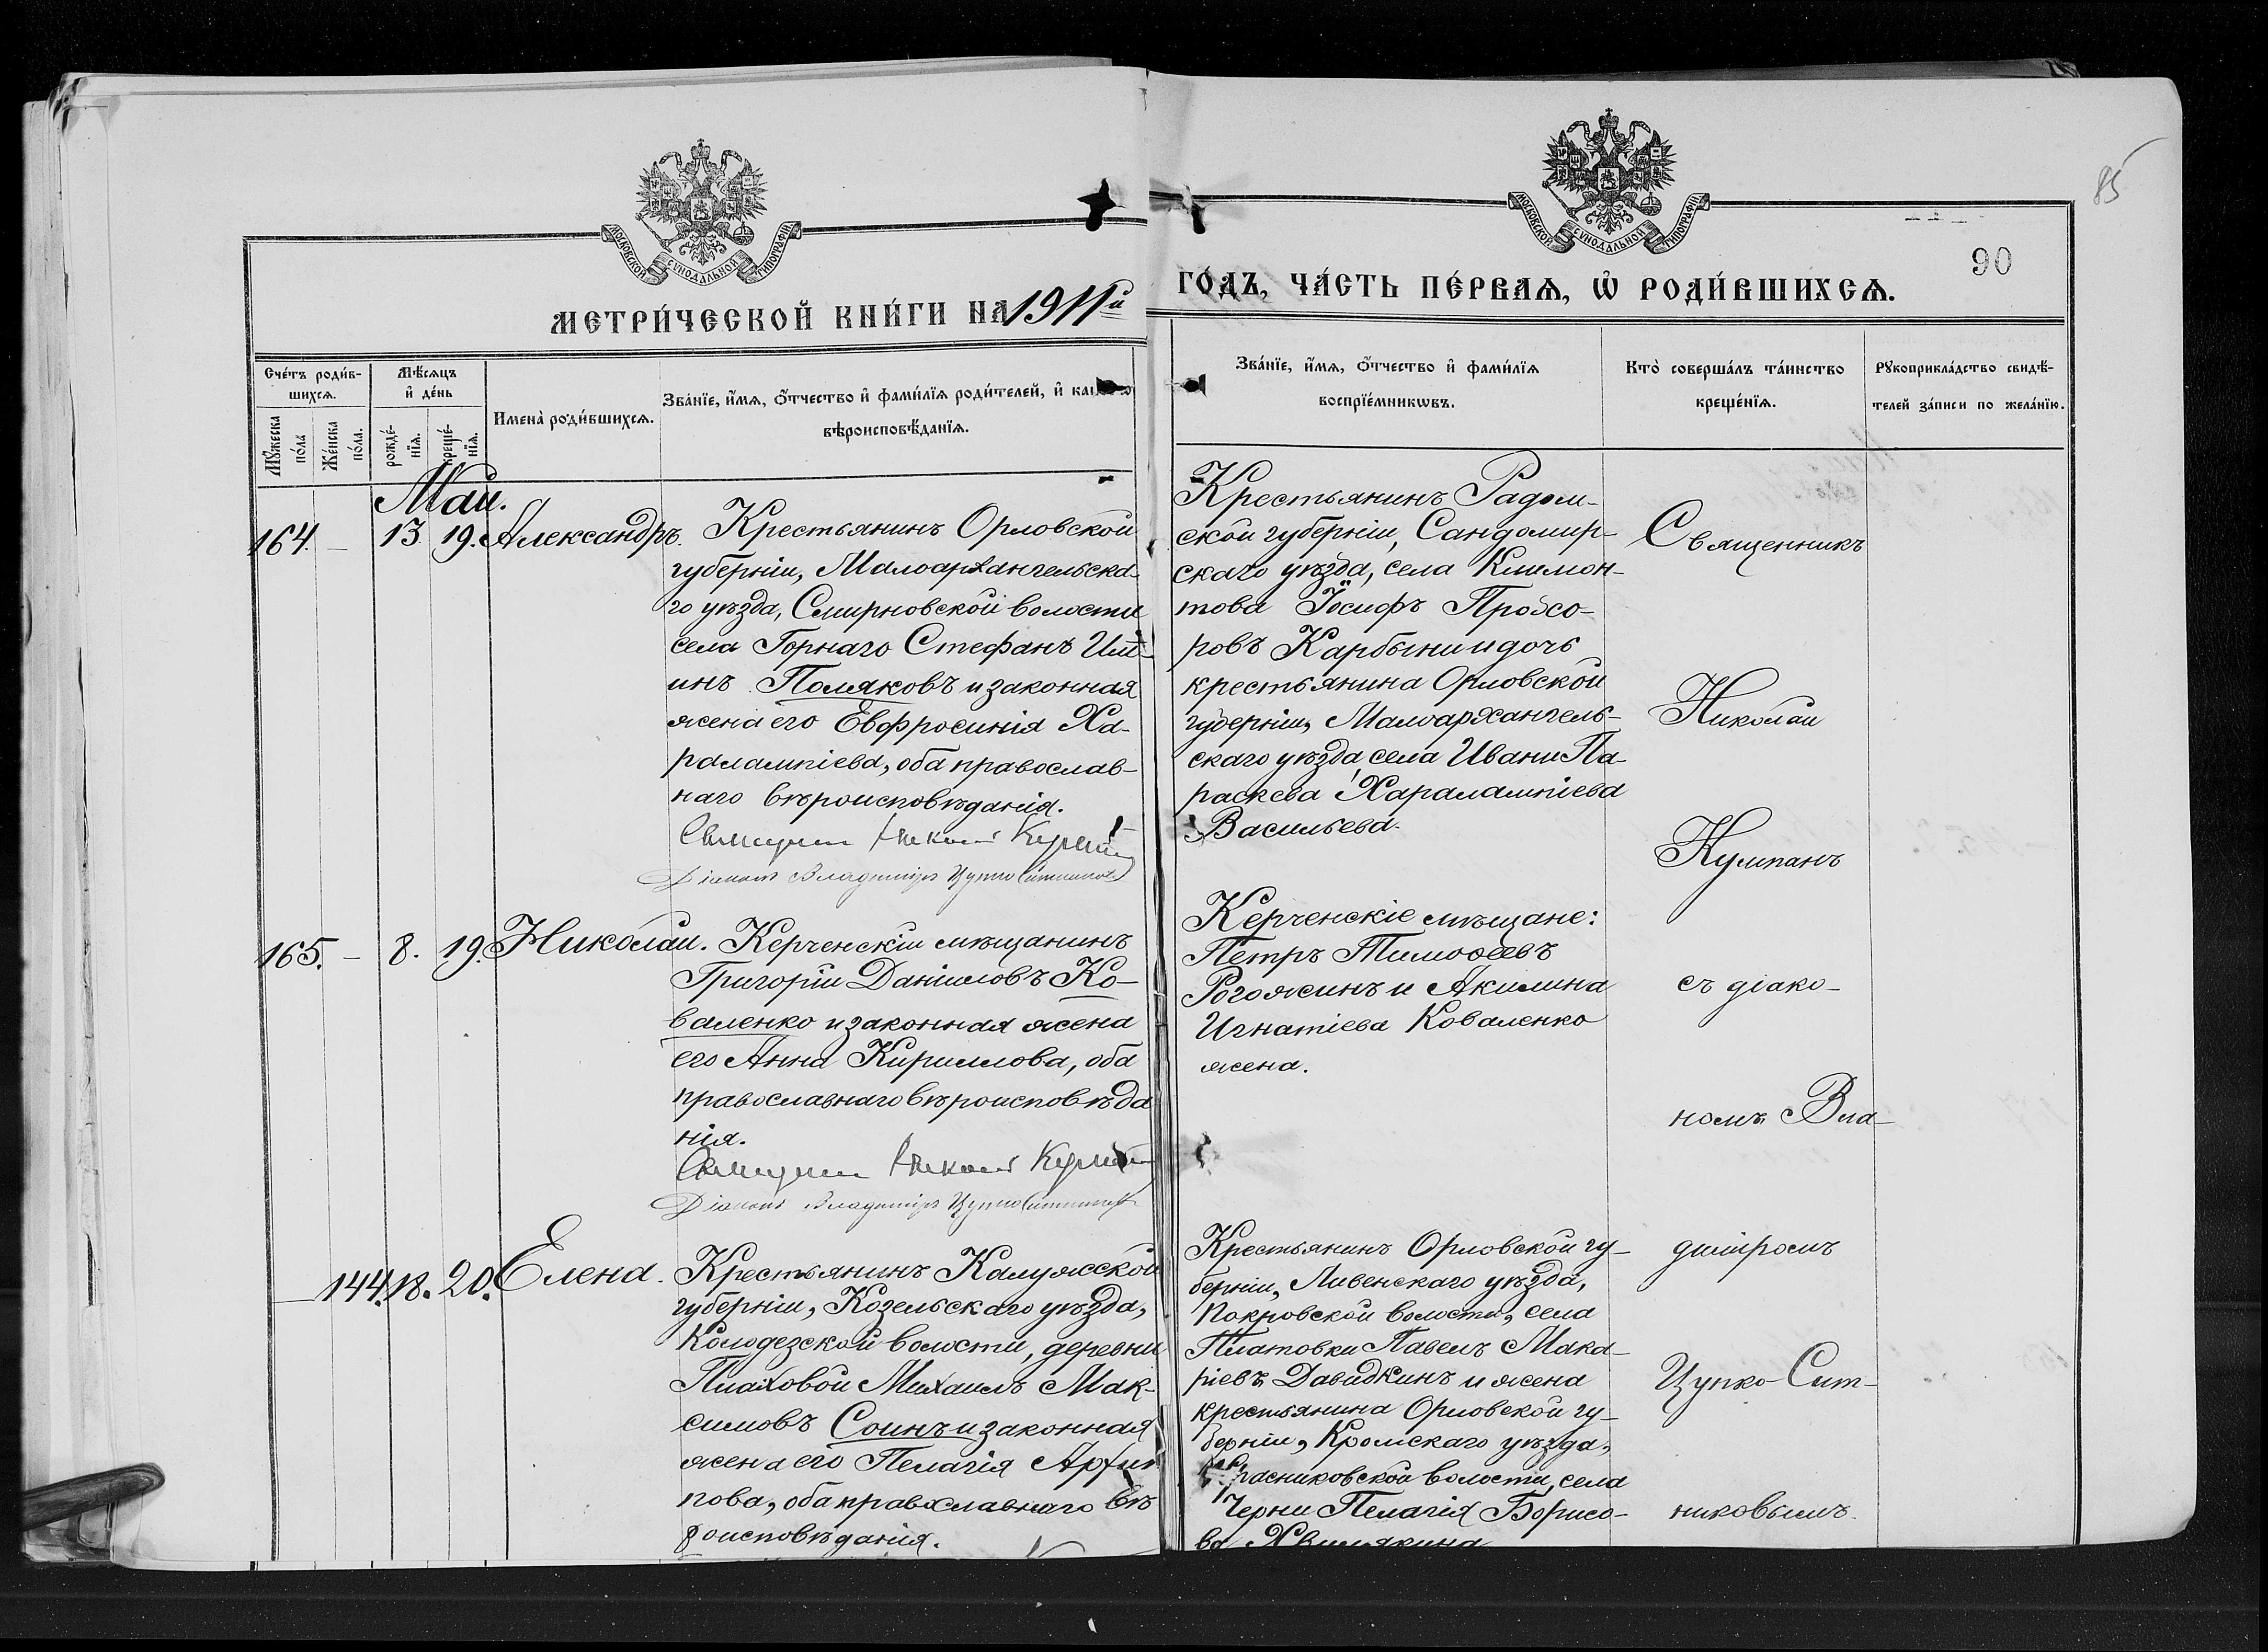 85
90
МОСКОВСКОЙ СУНОДАЛЬНОЙ ТИПОГРАФІИ
МОСКОВСКОЙ СУНОДАЛЬНОЙ ТИПОГРАФІИ
МЕТРИ́ЧЕСКОЙ КНИ́ГИ НА 1911й
ГО́ДЪ, ЧА́СТЬ ПЕ́РВАѦ, Ѡ҆ РОДИ́ВШИХСѦ.
Сче́тъ роди́в-
шихсѧ.
Мꙋ́жеска по́ла
Же́нска по́ла.
Мѣ́сѧцъ
и҆ де́нь
рожде́-
нїѧ.
креще́-
нїѧ.
Имена̀ роди́вшихсѧ.
Зва́нїе, и҆́мѧ, ѻ҆́тчество и҆ фами́лїѧ роди́телей, и҆
вѣроисповѣ́данїѧ.
Зва́нїе, и҆́мѧ, ѻ҆́тчество и҆ фами́лїѧ
воспрїе́мникѡвъ.
Кто̀ соверша́лъ та́инство
креще́нїѧ.
Рꙋкоприкла́дство свидѣ́-
телей за́писи по жела́нїю.
Май.
164. — 13 19. Александръ.
Крестьянинъ Орловской
губерніи, Малоархангельска-
го уѣзда, Смирновской волости
села Горнаго Стефанъ Иль-
инъ Поляковъ и законная
жена его Евфросинія Ха-
ралампіева, оба православ-
наго вѣроисповѣданія.
Священникъ Николай
Діаконъ Владиміръ Цупко-Ситниковъ
Крестьянинъ Радом-
ской губерніи, Сандомир-
скаго уѣзда, села Климон-
това Іосифъ Прохо-
ровъ Карбыни и дочь
крестьянина Орловской
губерніи, Малоархангель-
скаго уѣзда, села Ивани Па-
раскева Харалампіева
Васильева.
Священникъ
Николай
Кулпанъ
съ діако-
номъ Вла-
диміромъ
Цупко-Сит-
никовымъ.
165. — 8. 19. Николай.
Керченскій мѣщанинъ
Григорій Даніиловъ Ко-
валенко и законная жена
его Анна Кириллова, оба
православнаго вѣроисповѣда
нія.
Священникъ Николай
Діаконъ Владиміръ Цупко-Ситниковъ
Керченскіе мѣщане:
Петръ Тимоѳеевъ
Рогожинъ и Акилина
Игнатіева Коваленко
жена.
— 144. 18. 20. Елена.
Крестьянинъ Калужской
губерніи, Козельскаго уѣзда,
Колодезской волости, деревни
Плаховой Михаилъ Мак-
симовъ Соинъ и законная
жена его Пелагія
пова, оба православнаго вѣ
роисповѣданія.
Крестьянинъ Орловской гу-
берніи, Ливенскаго уѣзда,
Покровской волости, села
Платовки Павелъ Мака-
ріевъ Давидкинъ и жена
крестьянина Орловской гу-
берніи, Кромскаго уѣзда,
волости, села
Черни Пелагія Борисо-
ва